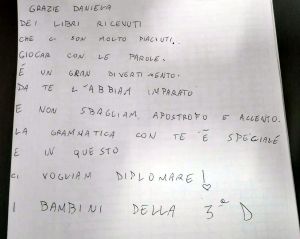 GRAZIE DANIELA
DEI LIBRI RICEVUTI
CHE CI SON MOLTO PIACIUTI.
GIOCAR CON LE PAROLE.
É UN GRAN DIVERTIMENTO.
DA TE L'ABBIAM IMPARATO
E NON SBAGLIAM, APOSTROFO E ACCENTO.
LA GRAMMATICA CON TE É SPECIALE
E IN QUESTO
CI VOGLIAM DIPLOMARE!
I BAMBINI DELLA 3ª D